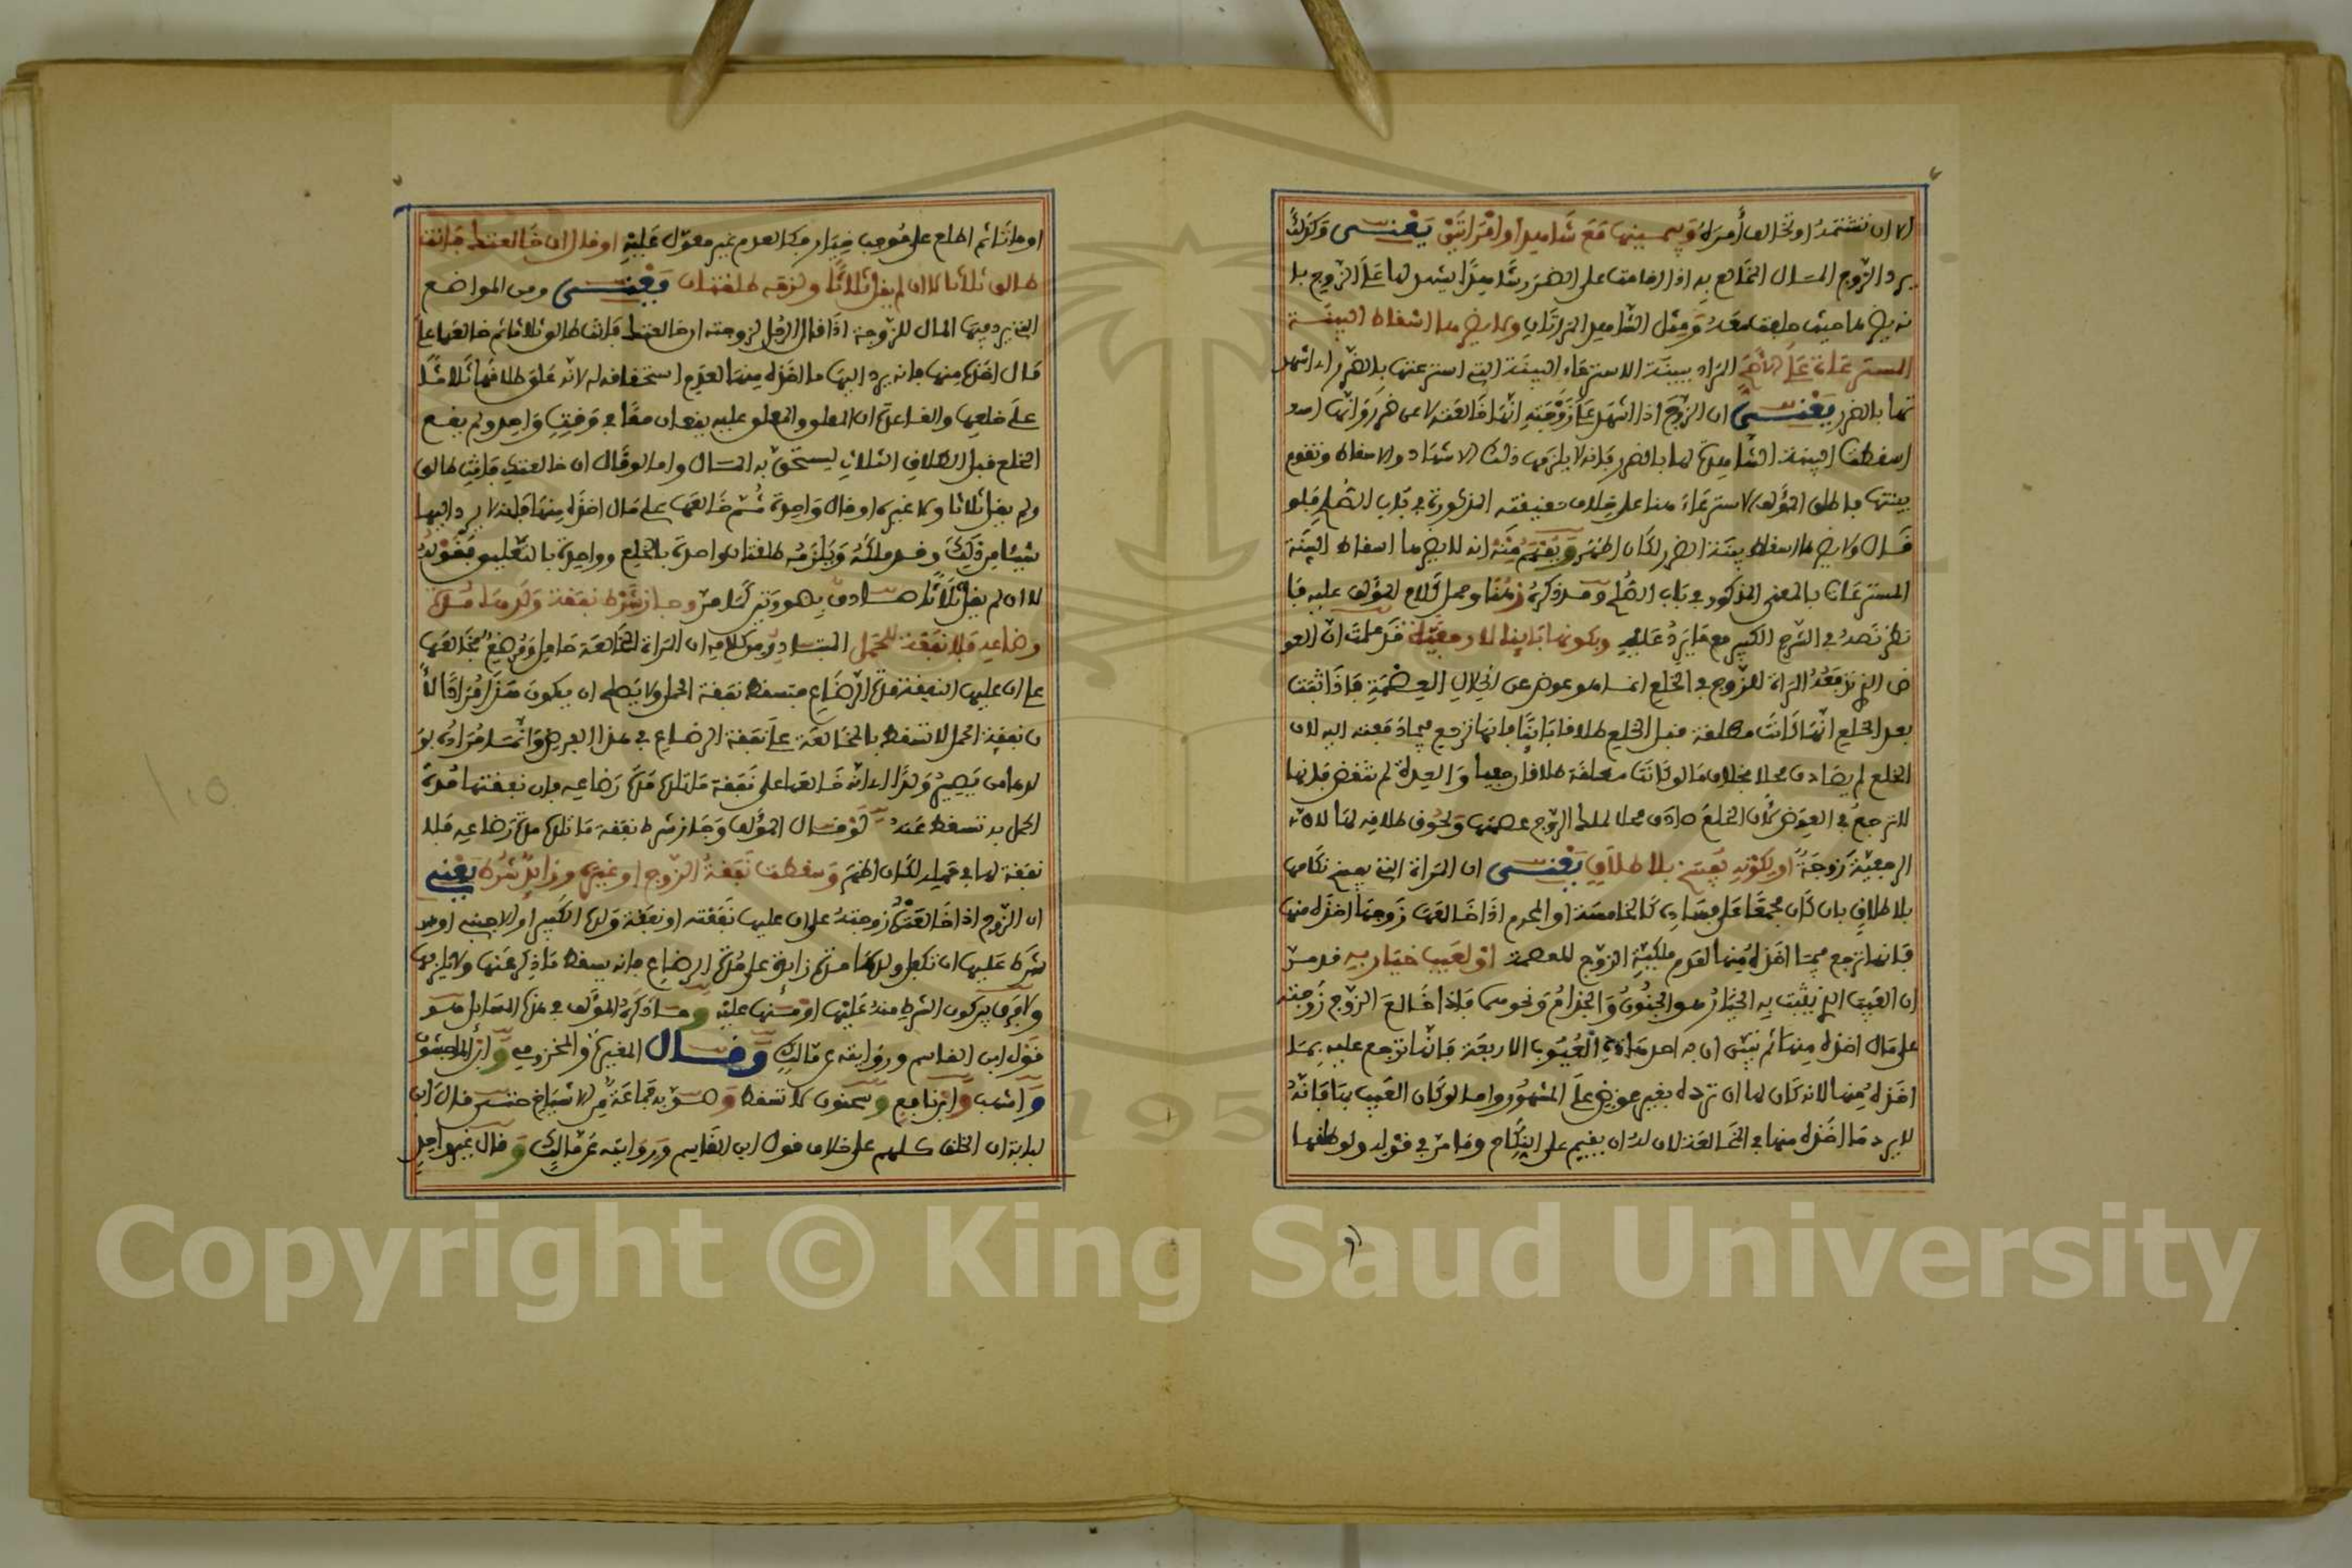 الا ان تفتمدا وتخالف أمره وبيمينها مع شاهد او امرأتين يعني وكذلك
يرد الزوج المال المخالع به اذا اقامت على الضرر شاهدا يشهد لها على الزوج بذ
لك ويضرها حيث حلفت معه ومثل الشاهد المرأتان ولا يضرها اسقاط البينة
المسترعاة على الأصح المراد ببينة الاسترعاء البينة التي استرعتها بالضرر اي اشهد
تها بالضرر يعني ان الزوج اذا اشهد على زوجته انها خالعته لا عن ضرر وانها
اسقطت البينة الشاهدة لها بالضرر فانه لا يلزمها ذلك الاشهاد والاسقاط وتقوم
بينتها فاطلق المؤلف الاسترعاء هنا على خلاف حقيقته المذكورة في باب الصلح فلو
قال ولا يضرها اسقاط بينة الضرر لكان اظهر ويفهم منه انه لا يضرها اسقاط البينة
المسترعاة بالمعنى المذكور في باب الصلح وقد ذكره ز هنا وحمل كلام المؤلف عليه فا
نظر نصه في الشرح الكبير مع ما يرد عليه وبكونها بائنا لا رجعية قد علمت ان العو
ض الذي تدفعه المرأة للزوج في الخلع انما هو عوض عن انحلال العصمة فاذا ثبت
بعد الخلع انها كانت مطلقة قبل الخلع طلاقا بائنا فانها ترجع فيما دفعته اليه لان
الخلع لم يصادف محلا بخلاف ما لو كانت مطلقة طلاقا رجعيا والعدة لم تنقض فانها
لا ترجع في العوض لان الخلع صادف محلا لملك الزوج عصمتها ولحوق طلاقه لها لان
الرجعية زوجة او لكونه يفسخ بلا طلاق يعني ان المرأة التي يفسخ نكاحها
بلا طلاق بان كان مجمعا على فساده كالخامسة او المحرم اذا خالعها زوجها اخذ منها
فانها ترجع فيما اخذه منها لعدم ملكية الزوج للعصمة او لعيب خيار به قد مر
ان العيب الذي يثبت به الخيار هو الجنون والجذام ونحوهما فاذا خالع الزوج زوجته
على مال اخذه منها ثم تبين ان به احد هاذه العيوب الاربعة فانها ترجع عليه بما
اخذه منها لانه كان لها ان ترده بغير عوض على المشهور واما لو كان العيب بها فانه
لا يرد ما اخذه منها في المخالعة لان له ان يقيم على النكاح وما مر في قوله ولو طلقها
او ماتا ثم اطلع على موجب خيار فكالعدم غير معول عليه او قال ان خالعتك فانت
طالق ثلاثا لا ان لم يقل ثلاثا ولزمه طلقتان يعني ومن المواضع
التي يرد فيها المال للزوجة اذا قال الرجل لزوجته ان خالعتك فانت طالق ثلاثا ثم خالعها على
مال اخذه منها فانه يرد اليها ما اخذه منها لعدم استحقاقه له لانه علق طلاقها ثلاثا
على خلعها والقاعدة ان المعلق والمعلق عليه يقعان معا في وقت واحد ولم يقع
الخلع قبل الطلاق الثلاث ليستحق به المال واما لو قال ان خالعتك فانت طالق
ولم يقل ثلاثا ولا غيره او قال واحدة ثم خالعها على مال اخذه منها فانه لا يرد اليها
شيئا من ذلك وقد ملكه ويلزمه طلقتان واحدة بالخلع وواحدة بالتعليق فقوله
لا ان لم يقل ثلاثا وجاز شرط نفقة ولدها مدة
رضاعه فلا نفقة للحمل المتبادر من كلامه ان المرأة المخالعة حامل ومرضع فخالعها
على ان عليها النفقة مدة الرضاع فتسقط نفقة الحمل ولا يصلح ان يكون هذا مرادا لأ
ن نفقة الحمل لا تسقط بالمخالعة على نفقة الرضاع في هذا الفرض وانما مراده بو
لدها من يصير ولدا اي انه خالعها على نفقة ما تلده مدة رضاعه فان نفقتها مدة
الحمل به تسقط عنه لو قال المؤلف وجاز شرط نفقة ما تلده مدة رضاعه فلا
نفقة لها في حمله لكان اظهر وسقطت نفقة الزوج او غيره وزائد شرط يعني
ان الزوج اذا خالعته زوجته على ان عليها نفقته او نفقة ولده الكبير او الاجنبي او
شرط عليها ان تكفل ولدها مدة زائدة على مدة الرضاع فانه يسقط ما ذكر عنها ولا يلزمها
ولا فرق بين كون الشرط منه عليها او منها عليه وما ذكره المؤلف في هذه المسايل هو
قول ابن القاسم وروايته عن مالك وقال المغيرة والمخزومي وابن الماجشون
واشهب وابن نافع وسحنون لا تسقط وصوبه جماعة من الاشياخ حتى قال ابن
لبابة ان الخلق كلهم على خلاف قول ابن القاسم وروايته عن مالك وقال غير واحد
Copyright © King Saud University